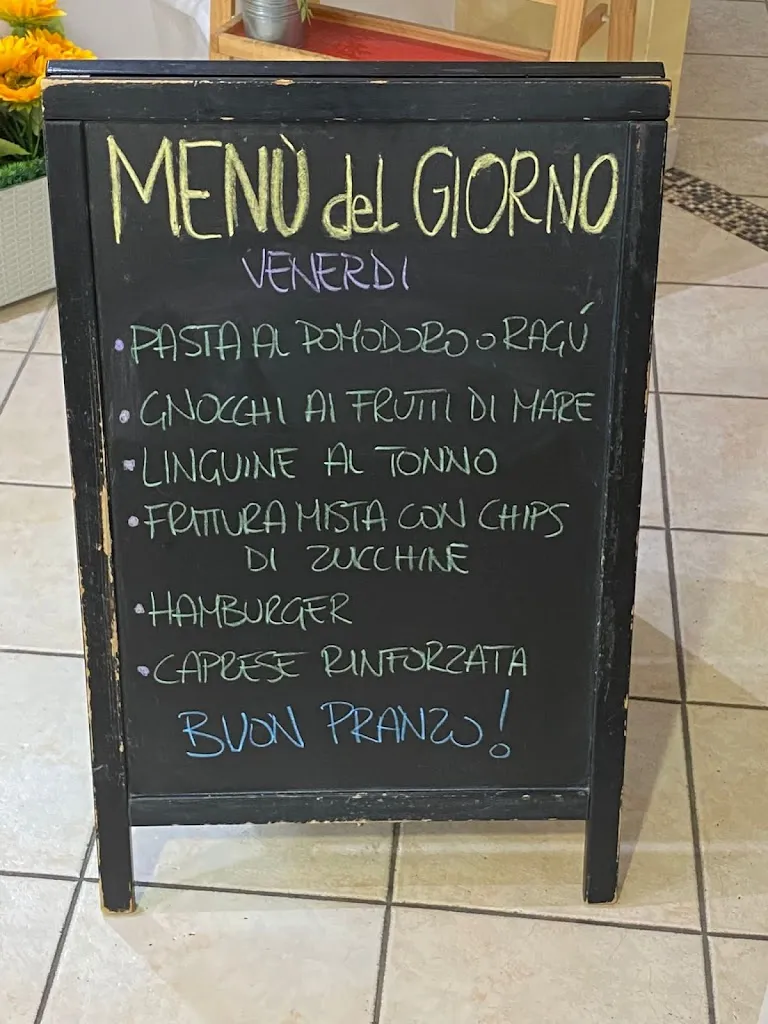 MENÙ del GIORNO
VENERDI
• PASTA AL POMODORO o RAGÚ
• GNOCCHI AI FRUTTI DI MARE
• LINGUINE AL TONNO
• FRITTURA MISTA CON CHIPS
DI ZUCCHINE
• HAMBURGER
• CAPRESE RINFORZATA
BUON PRANZO!